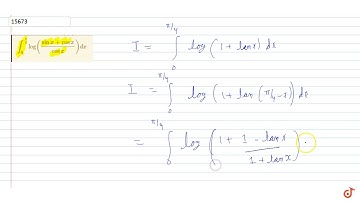 15673
∫ log((sin x + cos x)/cos x) dx
I = ∫₀^{π/4} log (1 + tan x) dx
I = ∫₀^{π/4} log (1 + tan (π/4 - x)) dx
= ∫₀^{π/4} log (1 + (1 - tan x)/(1 + tan x)) .